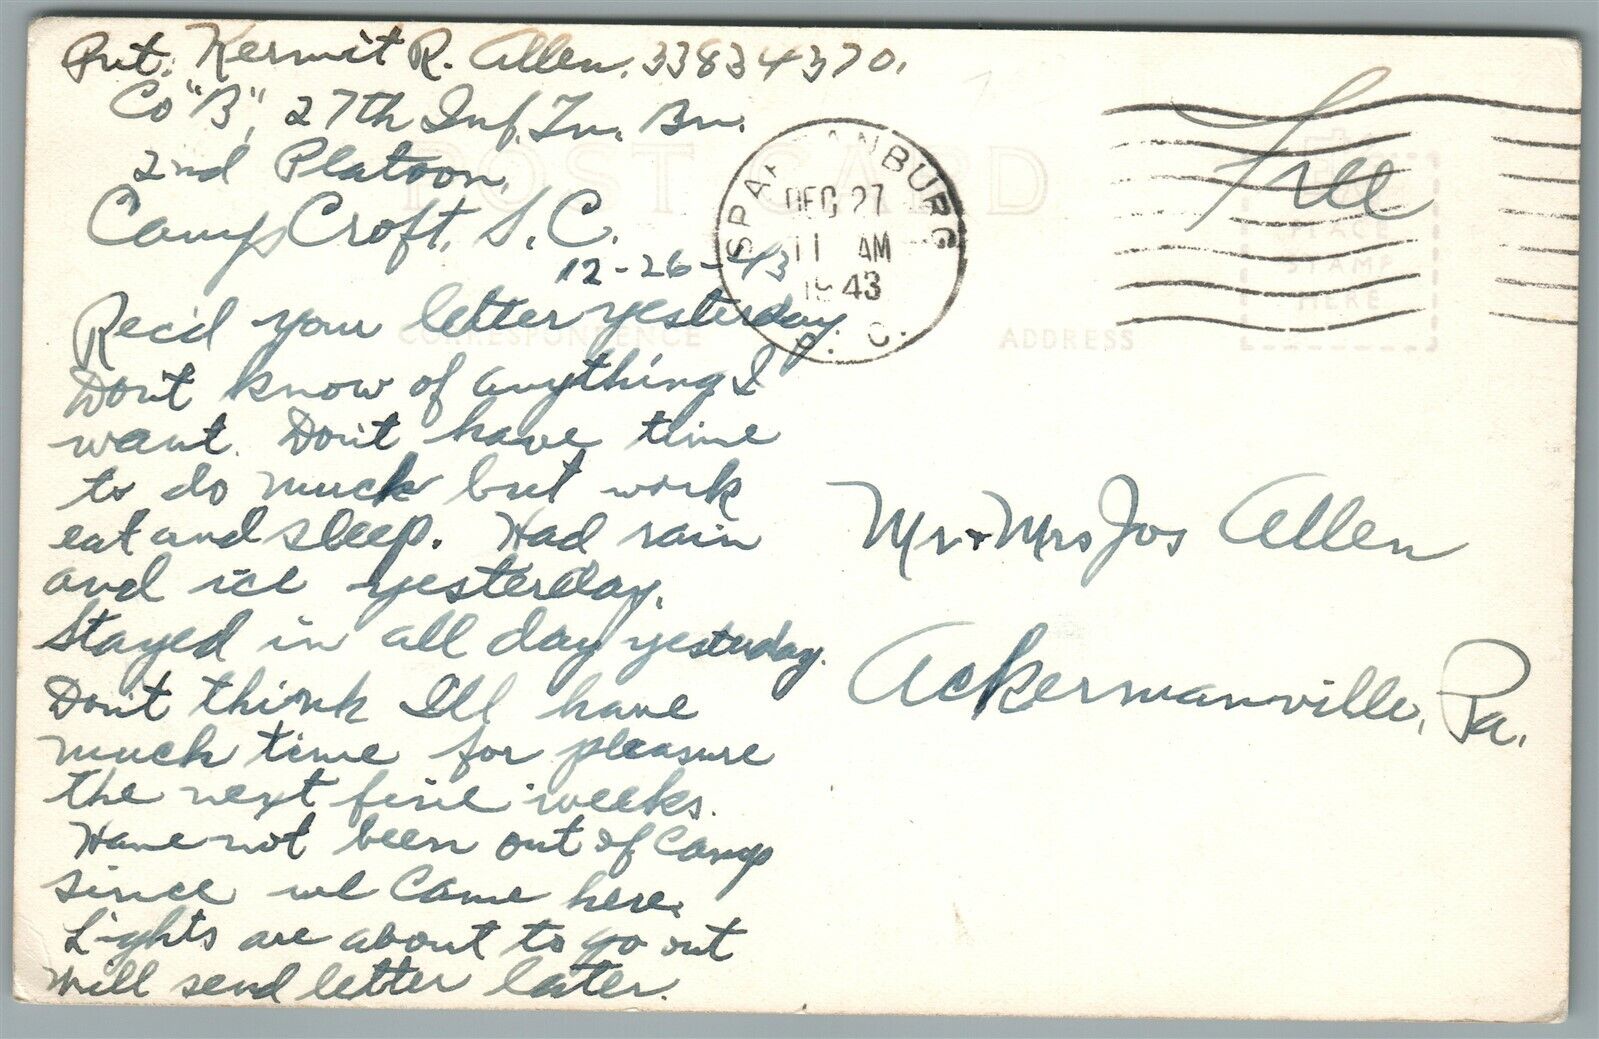 Pvt. Kermit R. Allen. 33834370.
Co "B", 27th Inf. Tn. Bn.
2nd Platoon,
Camp Croft, S.C.
12-26-43
Rec'd your letter yesterday
Don't know of anything I
want. Don't have time
to do much but work
eat and sleep. Had rain
and ice yesterday.
Stayed in all day yesterday.
Don't think I'll have
much time for pleasure
the next five weeks.
Have not been out of Camp
since we came here.
Lights are about to go out
Will send letter later.
POST CARD
CORRESPONDENCE
ADDRESS
SPARTANBURG
DEC 27
11 AM
1943
S. C.
Free
PLACE
STAMP
HERE
Mr + Mrs Jos Allen
Ackermanville, Pa.